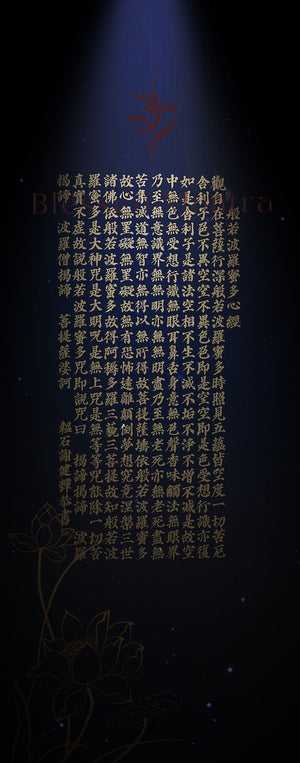 般若波羅蜜多心經
觀自在菩薩行深般若波羅蜜多時照見五蘊皆空度一切苦厄
舍利子色不異空空不異色色即是空空即是色受想行識亦復
如是舍利子是諸法空相不生不滅不垢不淨不增不減是故空
中無色無受想行識無眼耳鼻舌身意無色聲香味觸法無眼界
乃至無意識界無無明亦無無明盡乃至無老死亦無老死盡無
苦集滅道無智亦無得以無所得故菩提薩埵依般若波羅蜜多
故心無罣礙無罣礙故無有恐怖遠離顛倒夢想究竟涅槃三世
諸佛依般若波羅蜜多故得阿耨多羅三藐三菩提故知般若波
羅蜜多是大神咒是大明咒是無上咒是無等等咒能除一切苦
真實不虛故說般若波羅蜜多咒即說咒曰 揭諦揭諦 波羅
揭諦 波羅僧揭諦 菩提薩婆訶